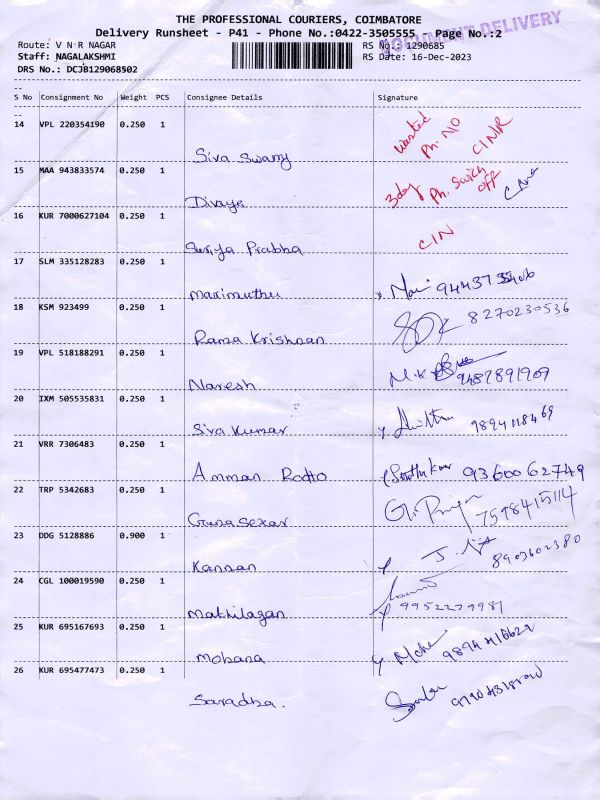 THE PROFESSIONAL COURIERS, COIMBATORE
Delivery Runsheet - P41 - Phone No.:0422-3505555 Page No.:2
DOCUMENT DELIVERY
Route: V N R NAGAR RS No.: 1290685
Staff: NAGALAKSHMI RS Date: 16-Dec-2023
DRS No.: DCJB129068502
S No Consignment No Weight PCS Consignee Details Signature
14 VPL 220354190 0.250 1 Siva Swamy wanted Ph. N/O
15 MAA 943833574 0.250 1 Divaya 3day Ph. Swich off
16 KUR 7000627104 0.250 1 Suriya Prabha CIN
17 SLM 335128283 0.250 1 Marimuthu
18 KSM 923499 0.250 1 Rama Krishnan 8270230536
19 VPL 518188291 0.250 1 Naresh 9487891909
20 IXM 505535831 0.250 1 Siva Kumar 9894118469
21 VRR 7306483 0.250 1 Amman 9360062749
22 TRP 5342683 0.250 1 Guna Sekar G. Priya 7598415114
23 DDG 5128886 0.900 1 Kannan 8903602380
24 CGL 100019590 0.250 1 Mathilagan 9952279981
25 KUR 695167693 0.250 1 Mohana
26 KUR 695477473 0.250 1 Saradha.